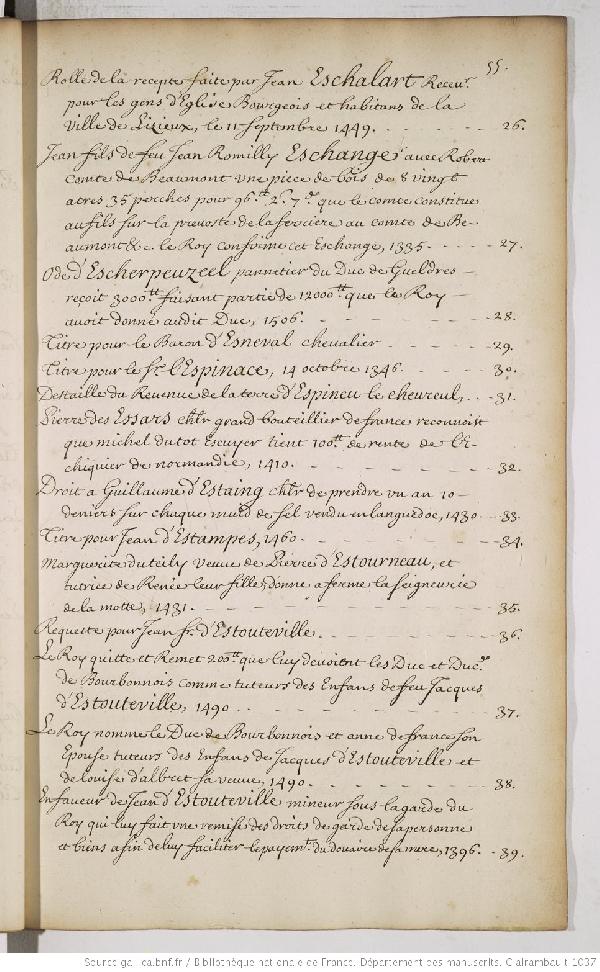 55.
Rolle de la recepte faite par Jean Eschalart Receur.
pour les gens d'Eglise Bourgeois et habitans de la
Ville de Lizieux, le 11 septembre 1449. - - - - - 26.
Jean fils de feu Jean Romilly Eschange avec Robert
Comte de Beaumont une piece de bois de 8 vingt
acres 35 perches pour 96.tt 2s. 7d. que le comte constitue
au fils sur la prevoste de la ferriere au comte de Be-
aumont &c. le Roy confirme cet Eschange, 1335. - - - - 27.
Ode d'Escherpeuzeel pannetier du Duc de Gueldres -
reçoit 3000tt faisant partie de 12000tt que le Roy -
avoit donné audit Duc, 1506. - - - - - 28.
Titre pour le Baron d'Esneval chevalier - - - - 29.
Titre pour le sr. l'Espinace, 14 octobre 1346. - - - 30.
Destaille du Revenue de la terre d'Espineu le cheureul, - - 31.
Pierre des Essars chlr grand bouteillier de france reconnoist
que michel dutot Escuyer tient 100tt de rente de l'E-
chiquier de normandie, 1410. - - - - - - 32.
Droit a Guillaume d'Estaing chlr de prendre un an 10 -
deniers sur chaque muid de sel vendu en languedoc, 1430 - - 33.
Titre pour Jean d'Estampes, 1460. - - - - - - 34.
Marguerite duteily veuve de Pierre d'Estourneau, et
tutrice de Renée leur fille, donne a ferme la seigneurie
de la motte, 1431. - - - - - - 35.
Requette pour Jean sr. d'Estouteville. - - - - - 36.
Le Roy quitte et Remet 200tt que luy devoient les Duc et Duc.
de Bourbonnois comme tuteurs des Enfans de feu Jacques
d'Estouteville, 1490. - - - - - - 37.
Le Roy nomme le Duc de Bourbonnois et anne de france son
Epouse tuteurs des Enfans de Jacques d'Estouteville et
de louise d'albret sa veuve, 1490. - - - - - 38.
En faveur de Jean d'Estouteville mineur sous la garde du
Roy qui luy fait une remise des droits de garde de sa personne
et biens afin de luy faciliter le payemt. du douaire de sa mere, 1396. - 39.
Source gallica.bnf.fr / Bibliothèque nationale de France. Département des manuscrits. Clairambault 1037